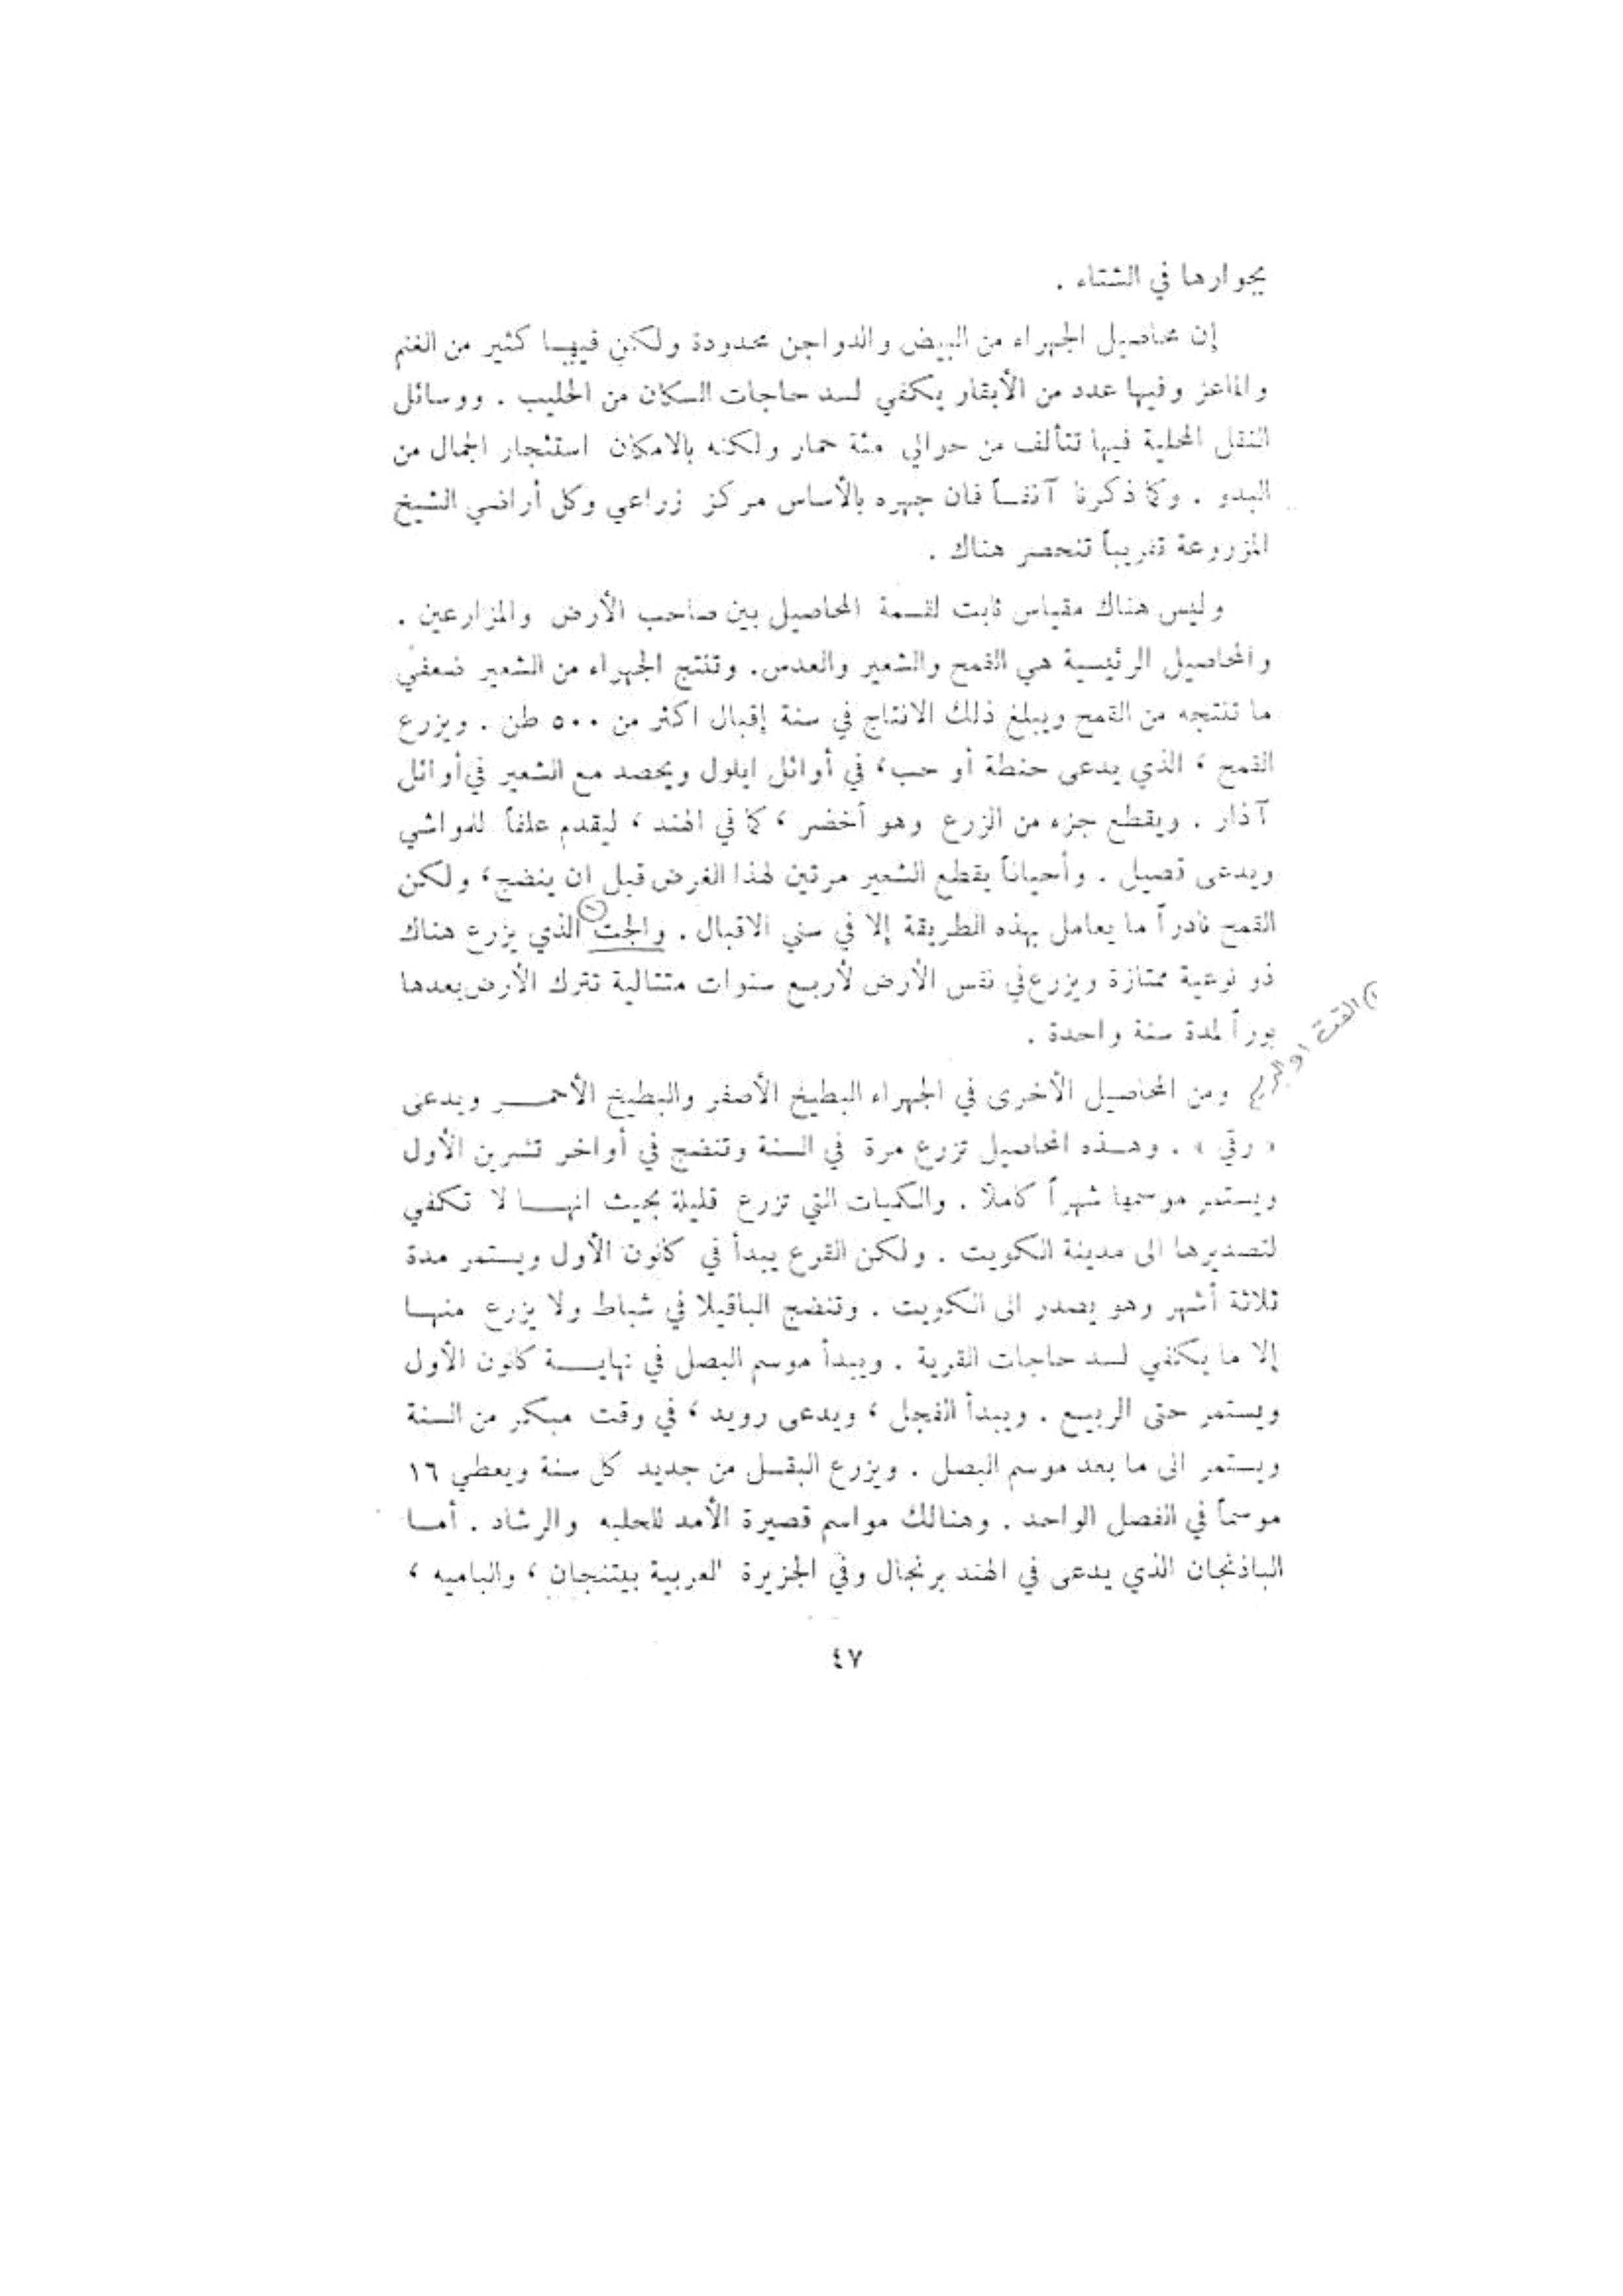 بجوارها في الشتاء .
إن محاصيل الجهراء من البيض والدواجن محدودة ولكن فيهــا كثير من الغنم
والماعز وفيها عدد من الأبقار يكفي لسد حاجات السكان من الحليب . ووسائل
النقل المحلية فيها تتألف من حوالي مئة حمار ولكنه بالامكان استئجار الجمال من
البدو . وكما ذكرنا آنفــاً فان جهره بالأساس مركز زراعي وكل أراضي الشيخ
المزروعة تقريباً تنحصر هناك .
وليس هناك مقياس ثابت لقسمة المحاصيل بين صاحب الأرض والمزارعين .
والمحاصيل الرئيسية هي القمح والشعير والعدس. وتنتج الجهراء من الشعير ضعفي
ما تنتجه من القمح ويبلغ ذلك الانتاج في سنة إقبال اكثر من ٥٠٠ طن . ويزرع
القمح ، الذي يدعى حنطة أو حب، في أوائل ايلول ويحصد مع الشعير في أوائل
آذار . ويقطع جزء من الزرع وهو أخضر ، كما في الهند ، ليقدم علفاً للمواشي
ويدعى قصيل . وأحياناً يقطع الشعير مرتين لهذا الغرض قبل ان ينضج، ولكن
القمح نادراً ما يعامل بهذه الطريقة إلا في سني الاقبال . والجت (١) الذي يزرع هناك
ذو نوعية ممتازة ويزرع في نفس الأرض لأربــع سنوات متتالية تترك الأرض بعدها
بوراً لمدة سنة واحدة .
١) القت او
ومن المحاصيل الأخرى في الجهراء البطيخ الأصفر والبطيخ الأحمــر ويدعى
« رقي » . وهــذه المحاصيل تزرع مرة في السنة وتنضج في أواخر تشرين الأول
ويستمر موسمها شهراً كاملاً . والكميات التي تزرع قليلة بحيث انهــا لا تكفي
لتصديرها الى مدينة الكويت . ولكن القرع يبدأ في كانون الأول ويستمر مدة
ثلاثة أشهر وهو يصدر الى الكويت . وتنضج الباقيلا في شباط ولا يزرع منهــا
إلا ما يكفي لسد حاجات القرية . ويبدأ موسم البصل في نهايــة كانون الأول
ويستمر حتى الربيع . ويبدأ الفجل ، ويدعى رويد ، في وقت مبكر من السنة
ويستمر الى ما بعد موسم البصل . ويزرع البقــل من جديد كل سنة ويعطي ١٦
موسماً في الفصل الواحد . وهنالك مواسم قصيرة الأمد للحلبه والرشاد . أمــا
الباذنجان الذي يدعى في الهند برنجال وفي الجزيرة العربية بيتنجان ، والباميه ،
٤٧